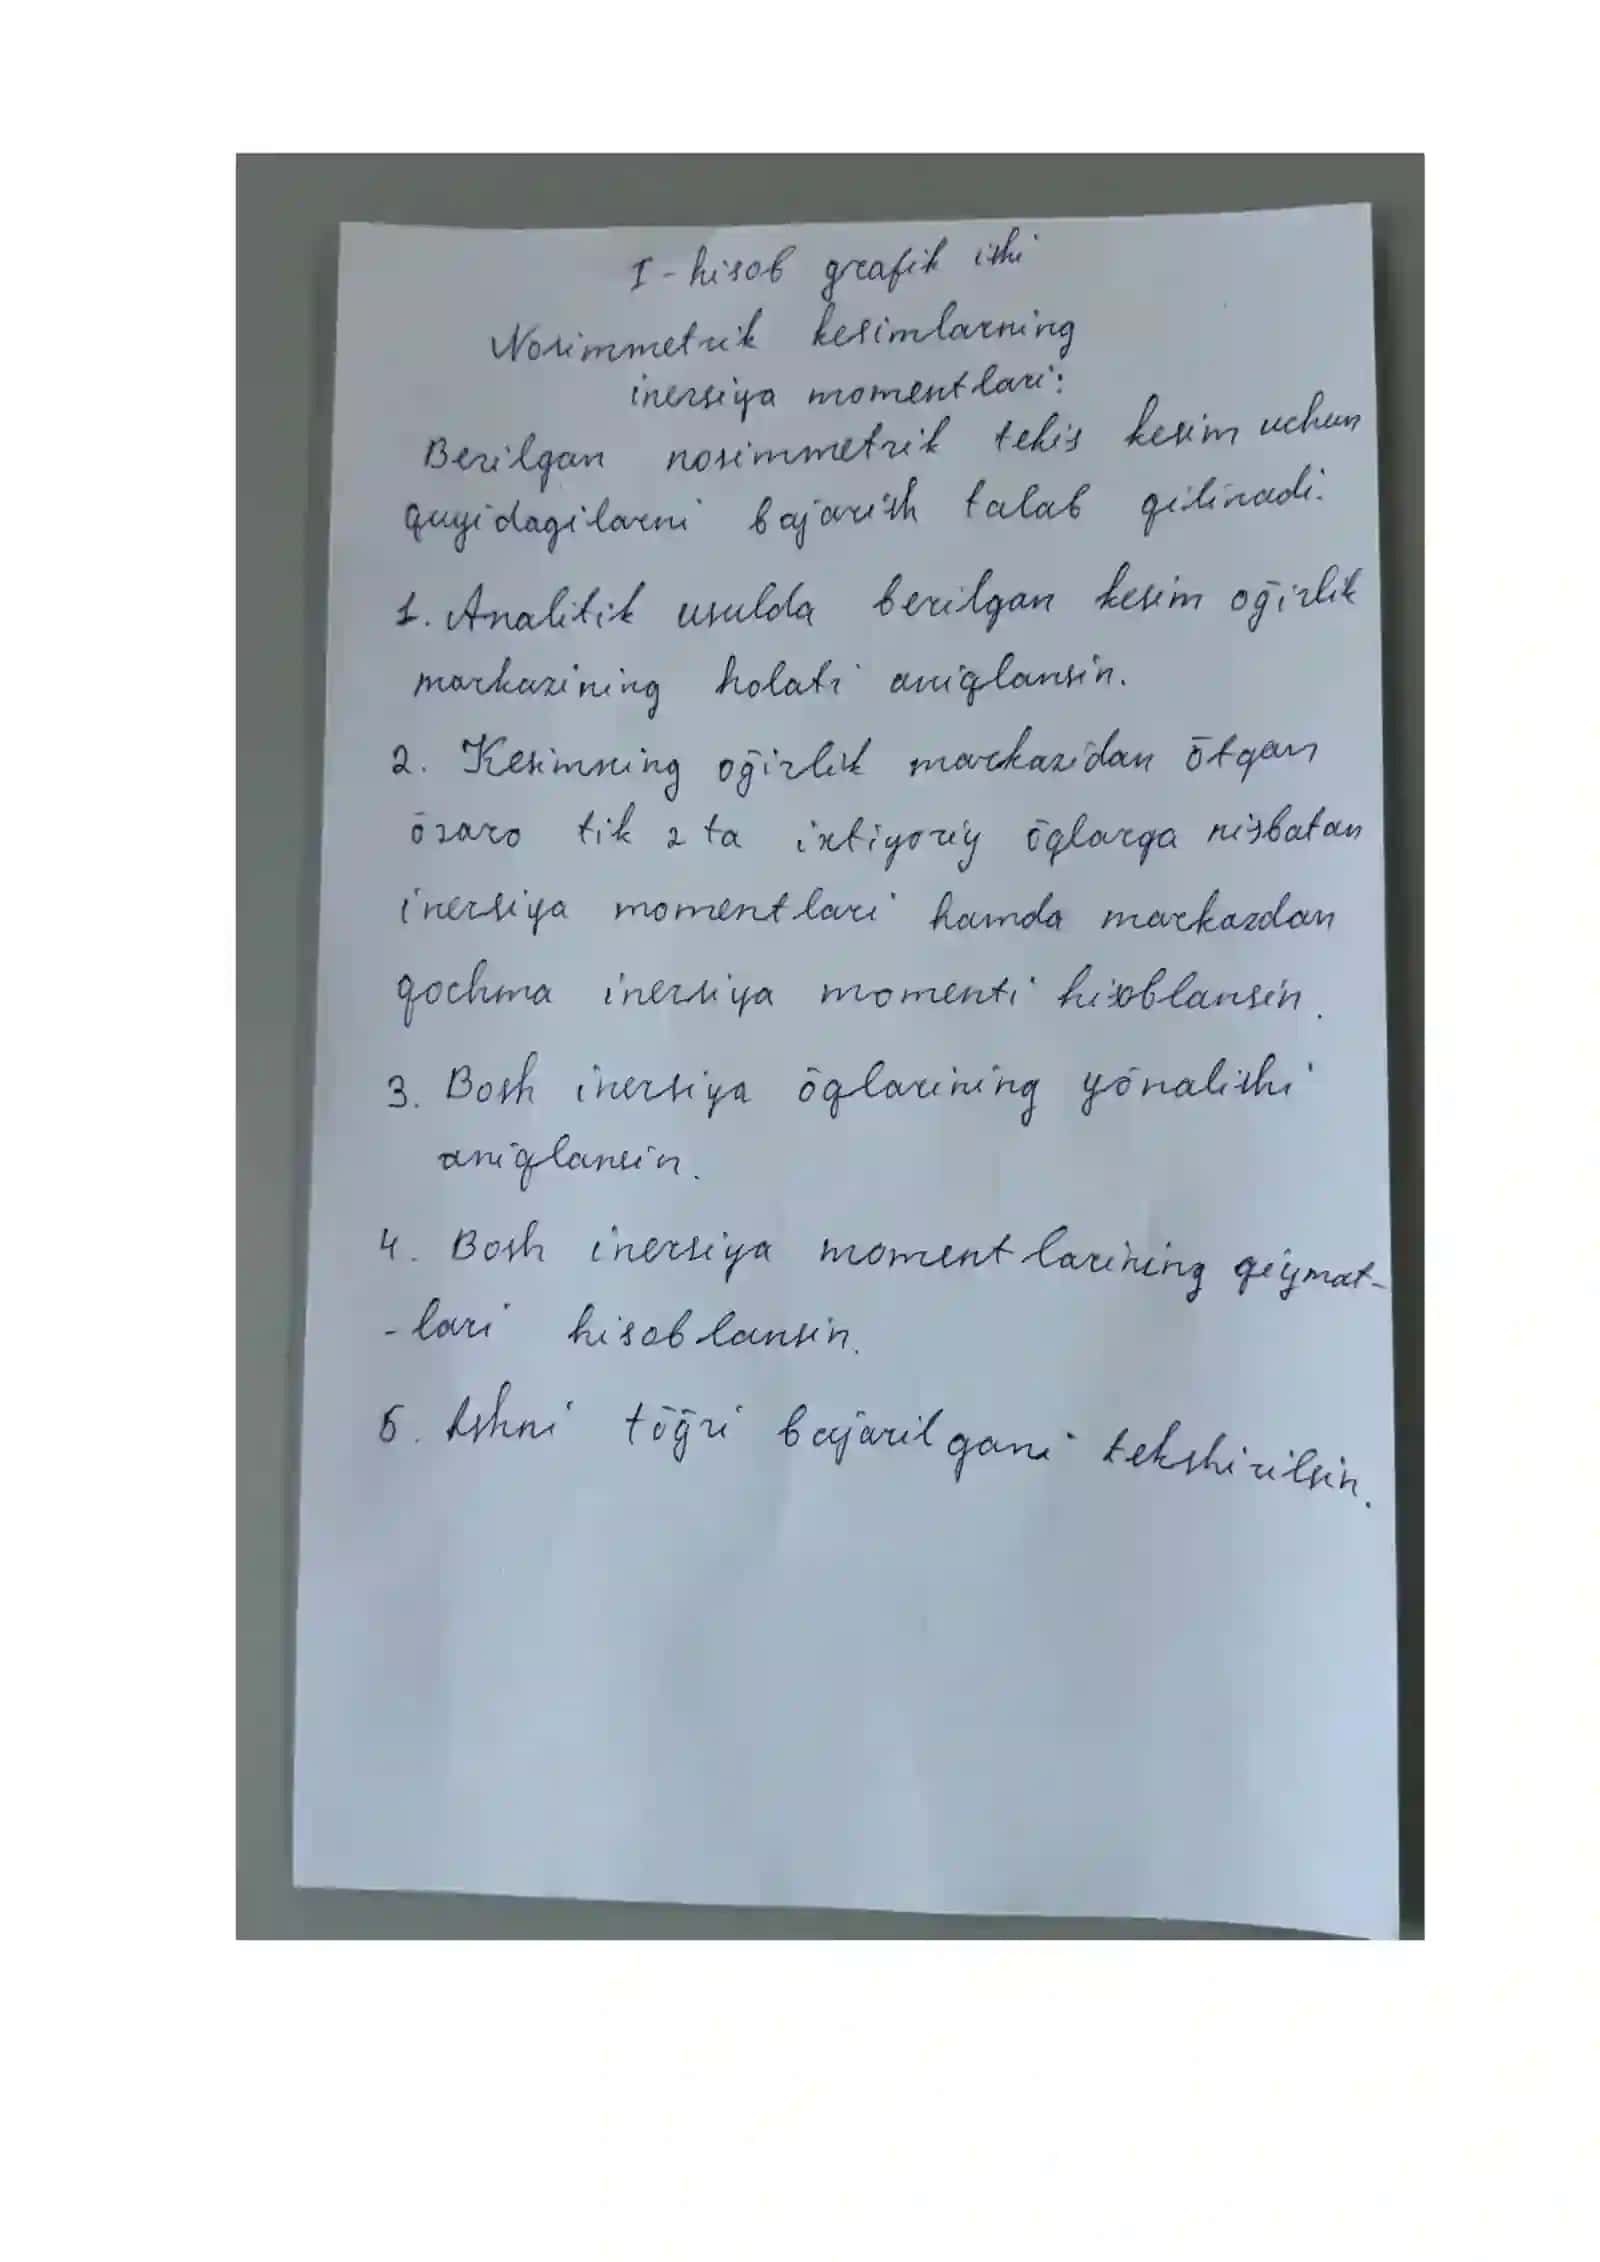 I - hisob grafik ishi
Nosimmetrik kesimlarning
inersiya momentlari:
Berilgan nosimmetrik tekis kesim uchun
quyidagilarni bajarish talab qilinadi.
1. Analitik usulda berilgan kesim oḡirlik
markazining holati aniqlansin.
2. Kesimning oḡirlik markazidan ōtgan
ōzaro tik 2 ta ixtiyoriy ōqlarga nisbatan
inersiya momentlari hamda markazdan
qochma inersiya momenti hisoblansin.
3. Bosh inersiya ōqlarining yōnalishi
aniqlansin.
4. Bosh inersiya momentlarining qiymat-
-lari hisoblansin.
5. Ishni tōḡri bajarilgani tekshirilsin.